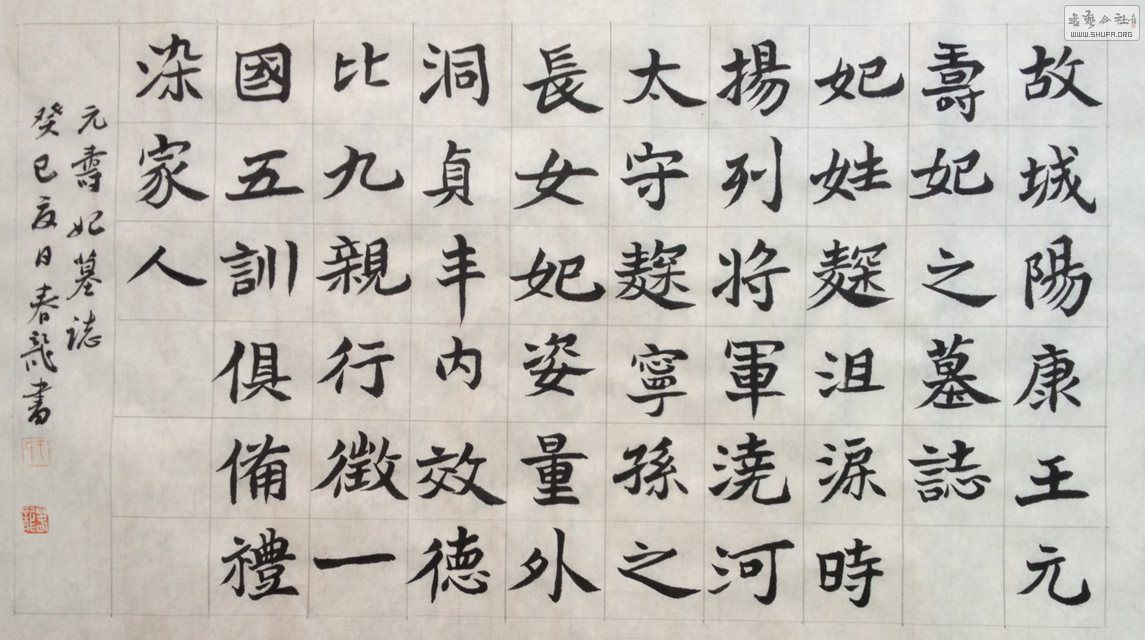 故城陽康王元
壽妃之墓誌
妃姓麴沮淚時
揚列將軍澆河
太守麴寧孫之
長女妃姿量外
洞貞丰内效德
比九親行徵一
國五訓俱備禮
染家人
元壽妃墓誌
癸巳夏日春龍書
書藝公社
WWW.SHUFA.ORG